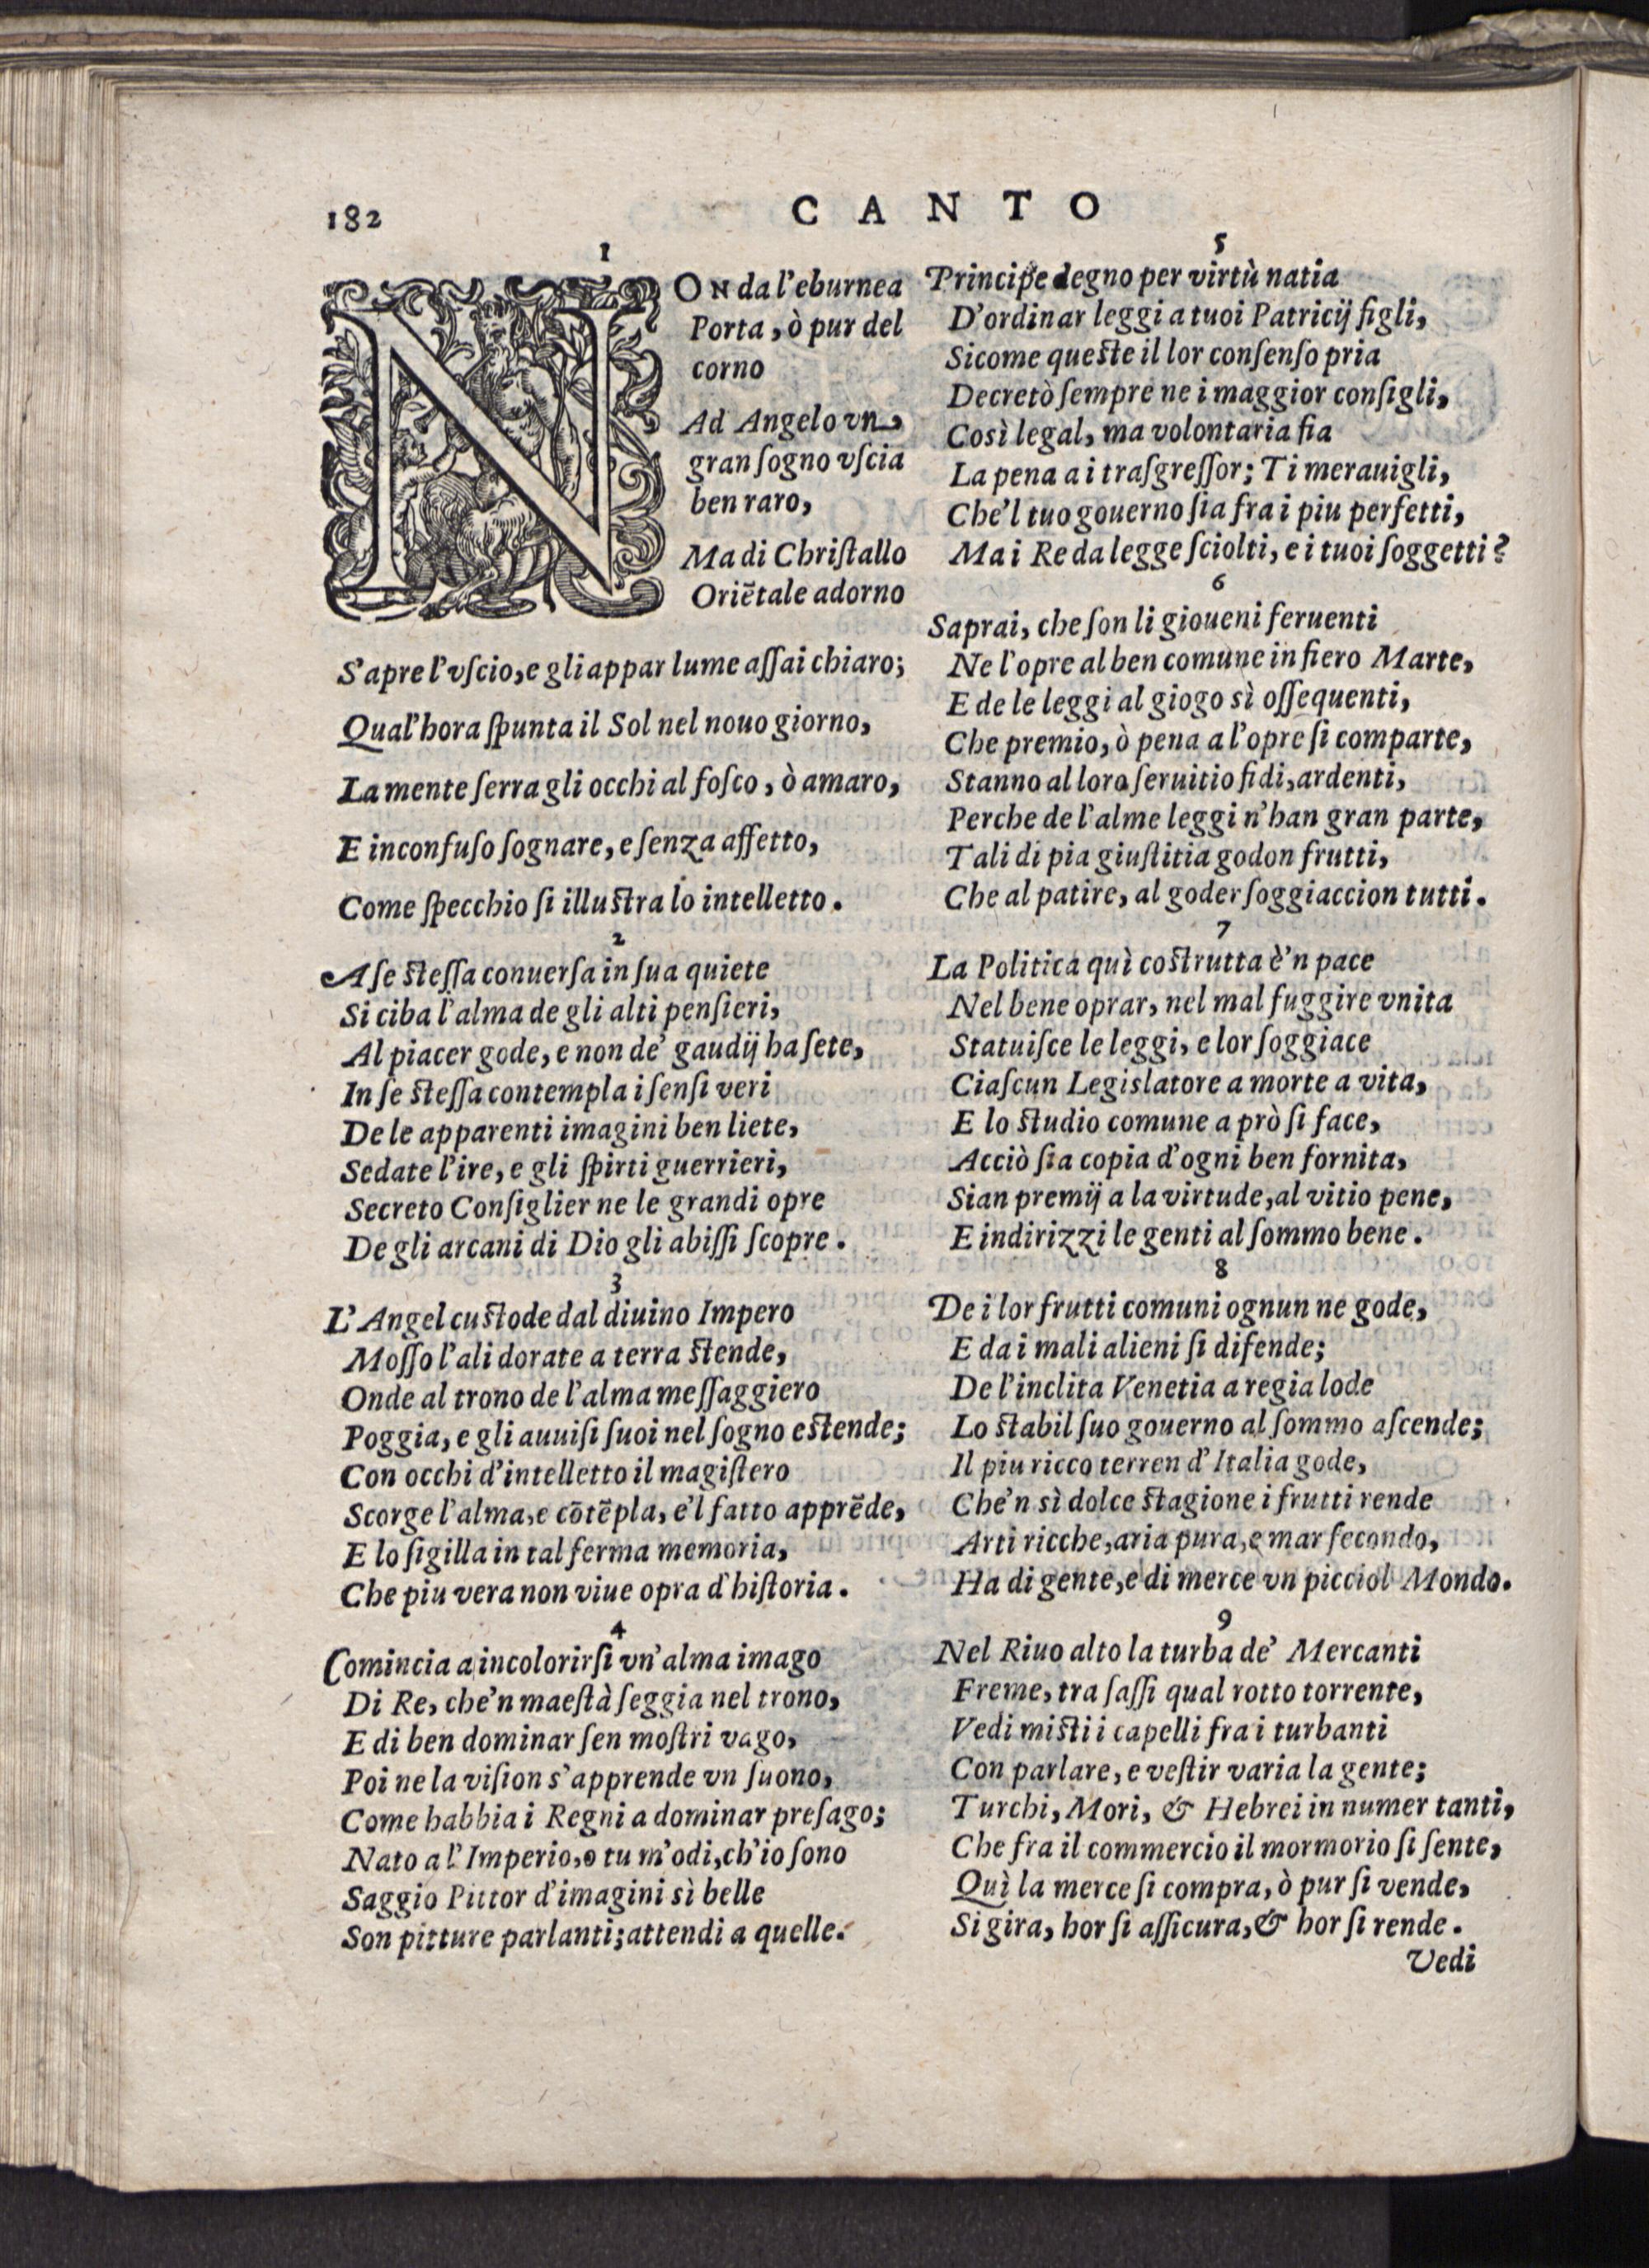 182
CANTO
1
NOn da l'eburnea
Porta, ò pur del
corno
Ad Angelo vn
gran ſogno vſcia
ben raro,
Ma di Chriſtallo
Oriẽtale adorno
S'apre l'vſcio, e gli appar lume aſſai chiaro;
Qual'hora ſpunta il Sol nel nouo giorno,
La mente ſerra gli occhi al foſco, ò amaro,
E inconfuſo ſognare, e ſenza affetto,
Come ſpecchio ſi illuſtra lo intelletto.
2
A ſe ſteſſa conuerſa in ſua quiete
Si ciba l'alma de gli alti penſieri,
Al piacer gode, e non de' gaudij ha ſete,
In ſe ſteſſa contempla i ſenſi veri
De le apparenti imagini ben liete,
Sedate l'ire, e gli ſpirti guerrieri,
Secreto Conſiglier ne le grandi opre
De gli arcani di Dio gli abiſſi ſcopre.
3
L'Angel cuſtode dal diuino Impero
Moſſo l'ali dorate a terra ſtende,
Onde al trono de l'alma meſſaggiero
Poggia, e gli auuiſi ſuoi nel ſogno eſtende;
Con occhi d'intelletto il magiſtero
Scorge l'alma, e cõtẽpla, e'l fatto apprẽde,
E lo ſigilla in tal ferma memoria,
Che piu vera non viue opra d'hiſtoria.
4
Comincia a incolorirſi vn'alma imago
Di Re, che'n maeſtà ſeggia nel trono,
E di ben dominar ſen moſtri vago,
Poi ne la viſion s'apprende vn ſuono,
Come habbia i Regni a dominar preſago;
Nato a l'Imperio, o tu m'odi, ch'io ſono
Saggio Pittor d'imagini sì belle
Son pitture parlanti; attendi a quelle.
5
Principe degno per virtù natia
D'ordinar leggi a tuoi Patricij figli,
Sicome queſte il lor conſenſo pria
Decretò ſempre ne i maggior conſigli,
Così legal, ma volontaria fia
La pena a i traſgreſſor; Ti merauigli,
Che'l tuo gouerno ſia fra i piu perfetti,
Ma i Re da legge ſciolti, e i tuoi ſoggetti?
6
Saprai, che ſon li gioueni feruenti
Ne l'opre al ben comune in fiero Marte,
E de le leggi al giogo sì oſſequenti,
Che premio, ò pena a l'opre ſi comparte,
Stanno al loro ſeruitio fidi, ardenti,
Perche de l'alme leggi n'han gran parte,
Tali di pia giuſtitia godon frutti,
Che al patire, al goder ſoggiaccion tutti.
7
La Politica quì coſtrutta è'n pace
Nel bene oprar, nel mal fuggire vnita
Statuiſce le leggi, e lor ſoggiace
Ciaſcun Legislatore a morte a vita,
E lo ſtudio comune a prò ſi face,
Acciò ſia copia d'ogni ben fornita,
Sian premij a la virtude, al vitio pene,
E indirizzi le genti al ſommo bene.
8
De i lor frutti comuni ognun ne gode,
E da i mali alieni ſi difende;
De l'inclita Venetia a regia lode
Lo ſtabil ſuo gouerno al ſommo aſcende;
Il piu ricco terren d'Italia gode,
Che'n sì dolce ſtagione i frutti rende
Arti ricche, aria pura, e mar fecondo,
Ha di gente, e di merce vn picciol Mondo.
9
Nel Riuo alto la turba de' Mercanti
Freme, tra ſaſſi qual rotto torrente,
Vedi miſti i capelli fra i turbanti
Con parlare, e veſtir varia la gente;
Turchi, Mori, & Hebrei in numer tanti,
Che fra il commercio il mormorio ſi ſente,
Quì la merce ſi compra, ò pur ſi vende,
Si gira, hor ſi aſſicura, & hor ſi rende.
Vedi